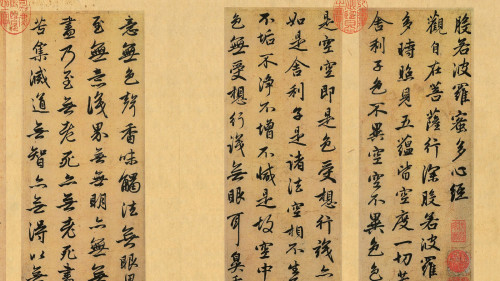 般若波羅蜜多心經
觀自在菩薩行深般若波羅
多時照見五蘊皆空度一切苦
舍利子色不異空空不異色色
是空空即是色受想行識亦
如是舍利子是諸法空相不生
不垢不淨不增不減是故空中
色無受想行識無眼耳鼻舌
意無色聲香味觸法無眼界
至無意識界無無明亦無無
盡乃至無老死亦無老死盡
苦集滅道無智亦無得以無